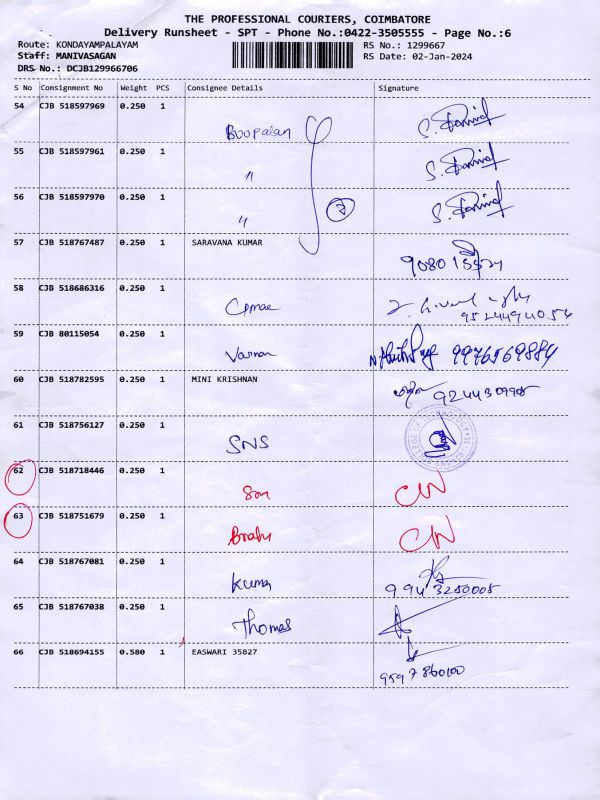 THE PROFESSIONAL COURIERS, COIMBATORE
Delivery Runsheet - SPT - Phone No.:0422-3505555 - Page No.:6
Route: KONDAYAMPALAYAM RS No.: 1299667
Staff: MANIVASAGAN RS Date: 02-Jan-2024
DRS No.: DCJB129966706
S No Consignment No Weight PCS Consignee Details Signature
54 CJB 518597969 0.250 1 Boopalan
55 CJB 518597961 0.250 1 "
56 CJB 518597970 0.250 1 "
3
57 CJB 518767487 0.250 1 SARAVANA KUMAR
58 CJB 518686316 0.250 1
9524494056
59 CJB 80115054 0.250 1 Varman 9976569884
60 CJB 518782595 0.250 1 MINI KRISHNAN
61 CJB 518756127 0.250 1 SNS
62 CJB 518718446 0.250 1
63 CJB 518751679 0.250 1
64 CJB 518767081 0.250 1 Kumar
9943250005
65 CJB 518767038 0.250 1 Thomas
66 CJB 518694155 0.580 1 EASWARI 35827
9597860100